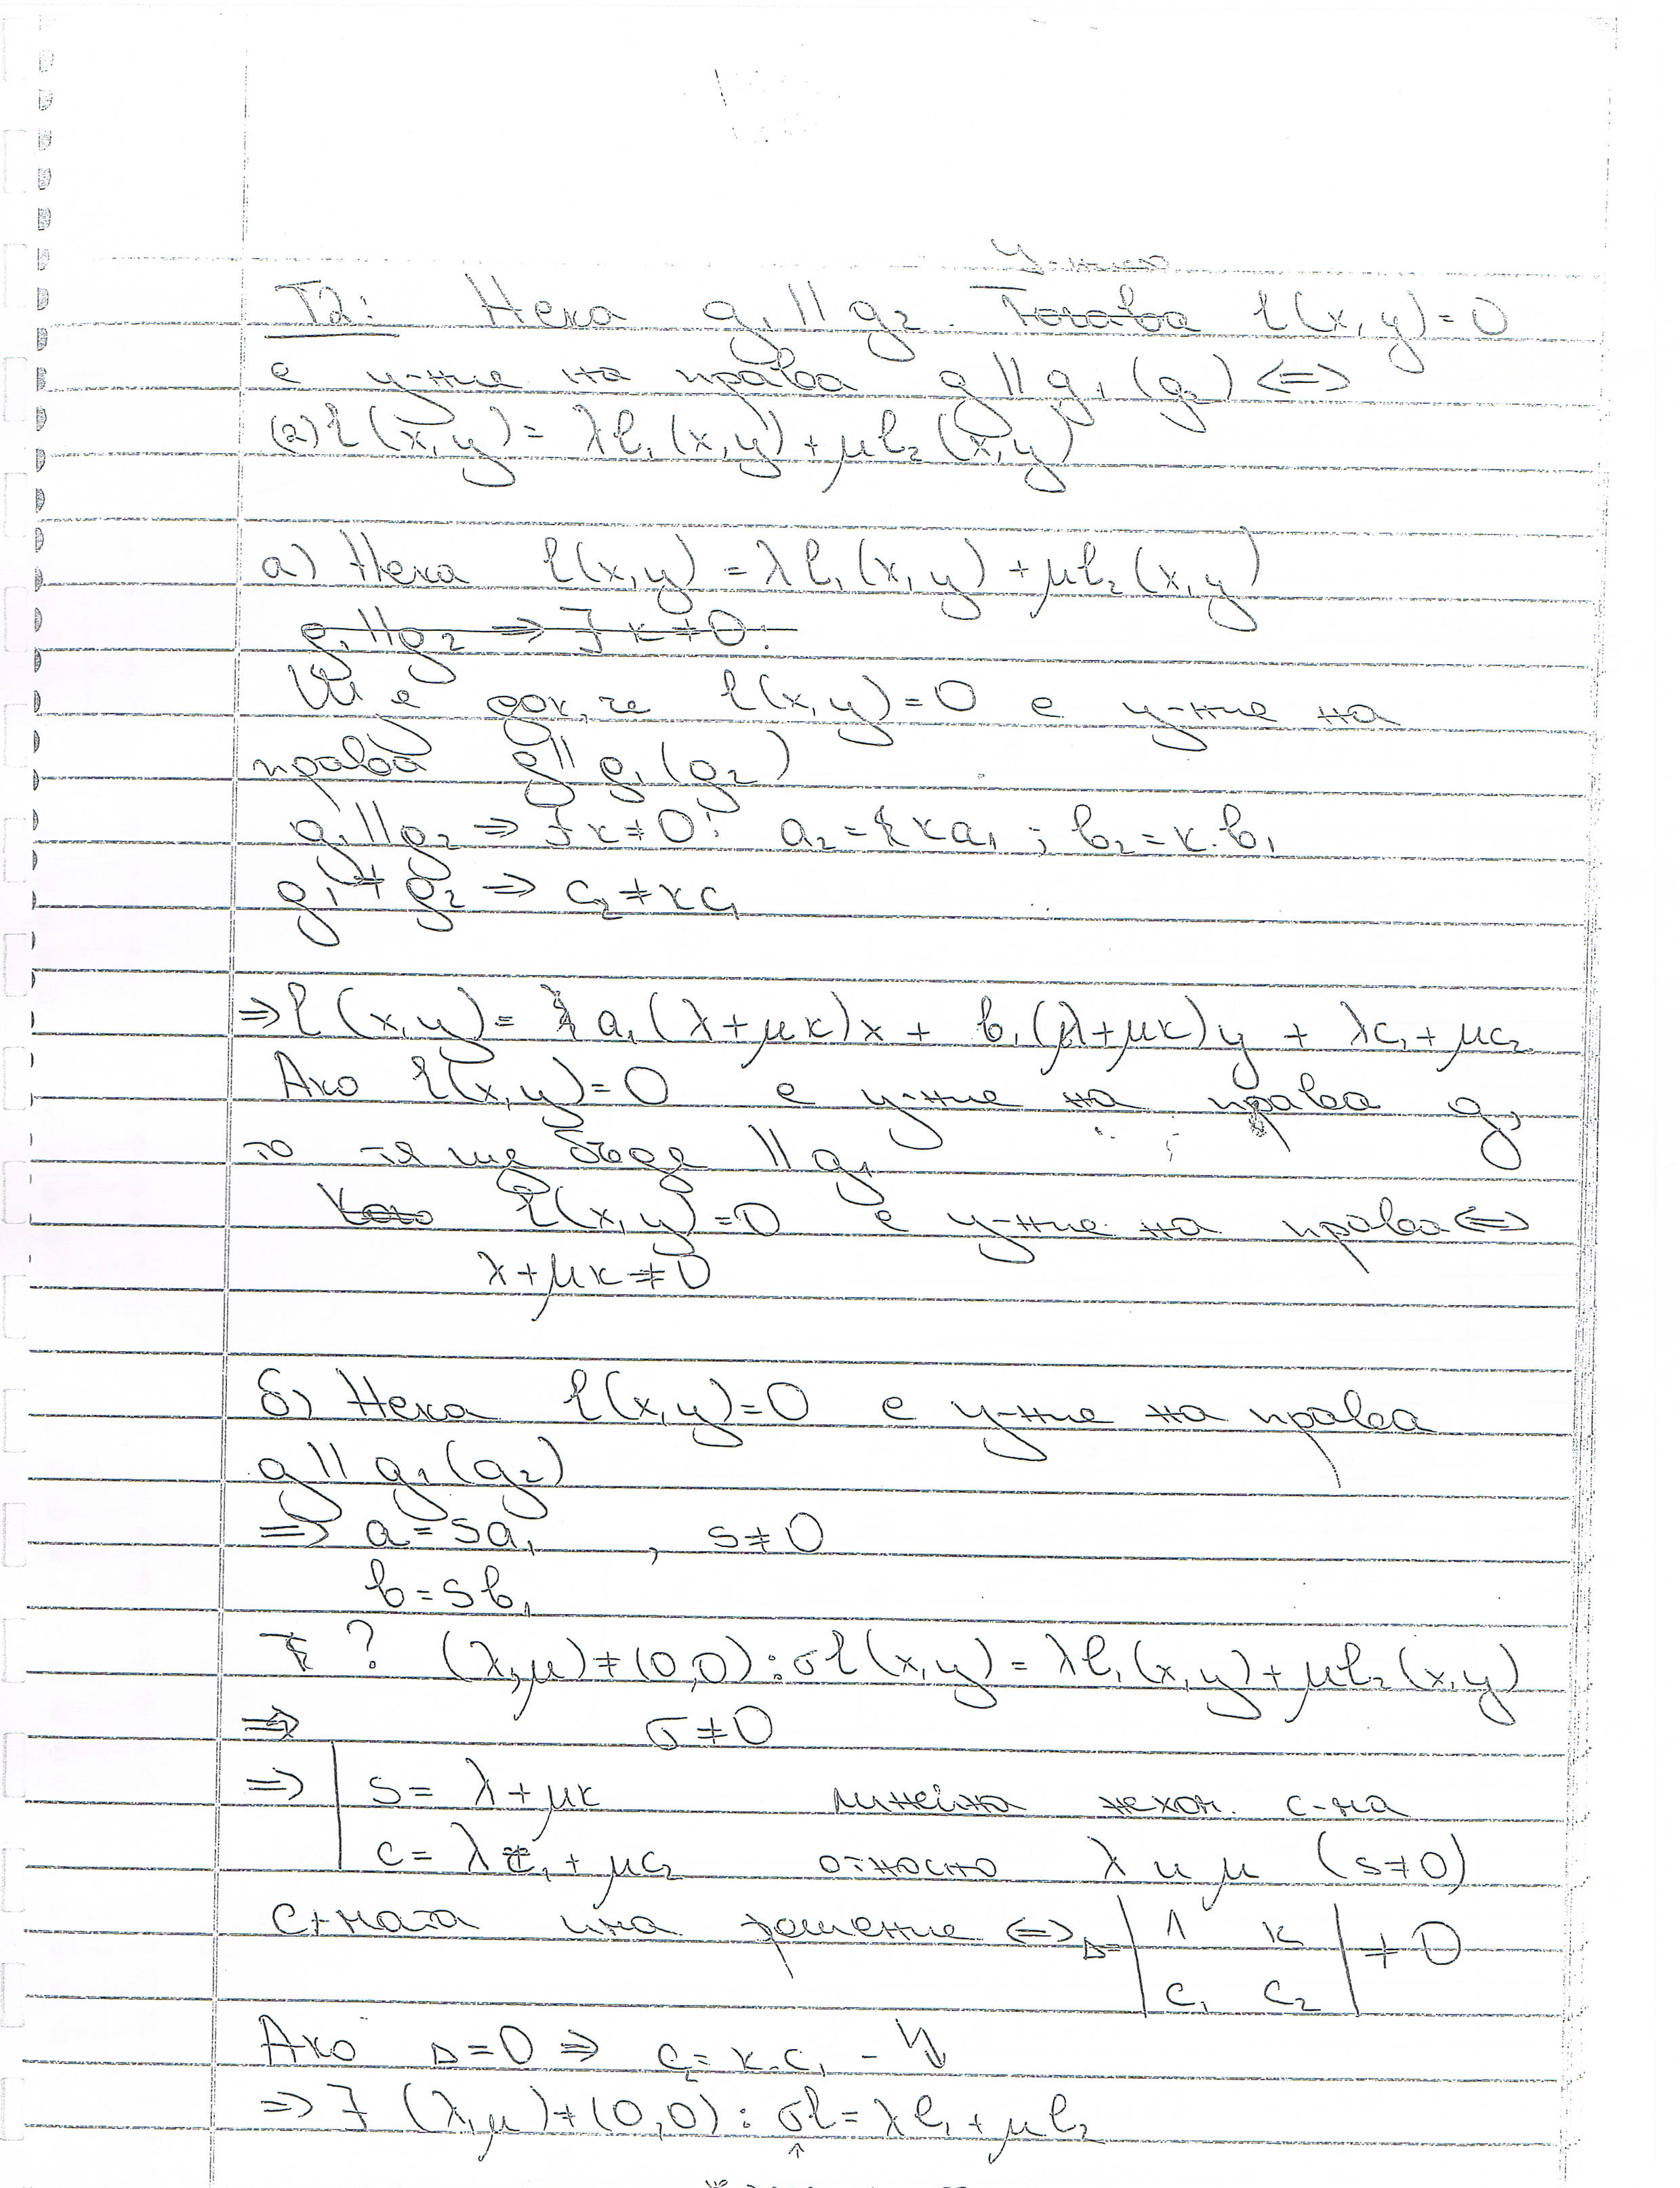 у-ние
Т2: Нека g₁ || g₂. Тогава l(x,y)=0
е у-ние на права g || g₁ (g₂) <=>
(2) l(x,y) = λl₁(x,y) + μl₂(x,y)
а) Нека l(x,y) = λl₁(x,y) + μl₂(x,y)
g₁||g₂ => ∃ k≠0:
Ще док, че l(x,y)=0 е у-ние на
права g || g₁ (g₂)
g₁||g₂ => ∃ k≠0: a₂ = ka₁ ; b₂ = k.b₁
g₁ ≠ g₂ => c₂ ≠ kc₁
=> l(x,y) = a₁(λ+μk)x + b₁(λ+μk)y + λc₁ + μc₂
Ако l(x,y)=0 е у-ние на права g,
то тя ще бъде || g₁
Като l(x,y)=0 е у-ние на права <=>
λ+μk≠0
б) Нека l(x,y)=0 е у-ние на права
g || g₁ (g₂)
=> a = sa₁ , s≠0
b = sb₁
∃? (λ,μ)≠(0,0): σl(x,y) = λl₁(x,y) + μl₂(x,y)
=> σ≠0
=> | s = λ+μk линейна нехом. с-ма
c = λc₁ + μc₂ относно λ и μ (s≠0)
С-мата има решение <=> Δ= | 1 k | ≠ 0
c₁ c₂
Ако Δ=0 => c₂ = k.c₁ - ↯
=> ∃ (λ,μ)≠(0,0): σl = λl₁ + μl₂
↑